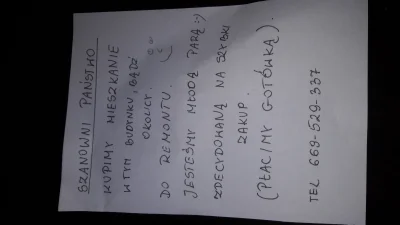 SZANOWNI PAŃSTWO
KUPIMY MIESZKANIE
W TYM BUDYNKU, BĄDŹ
OKOLICY.
DO REMONTU.
JESTEŚMY MŁODĄ PARĄ :)
ZDECYDOWANĄ NA SZYBKI
ZAKUP.
(PŁACIMY GOTÓWKĄ).
TEL 669-529-337